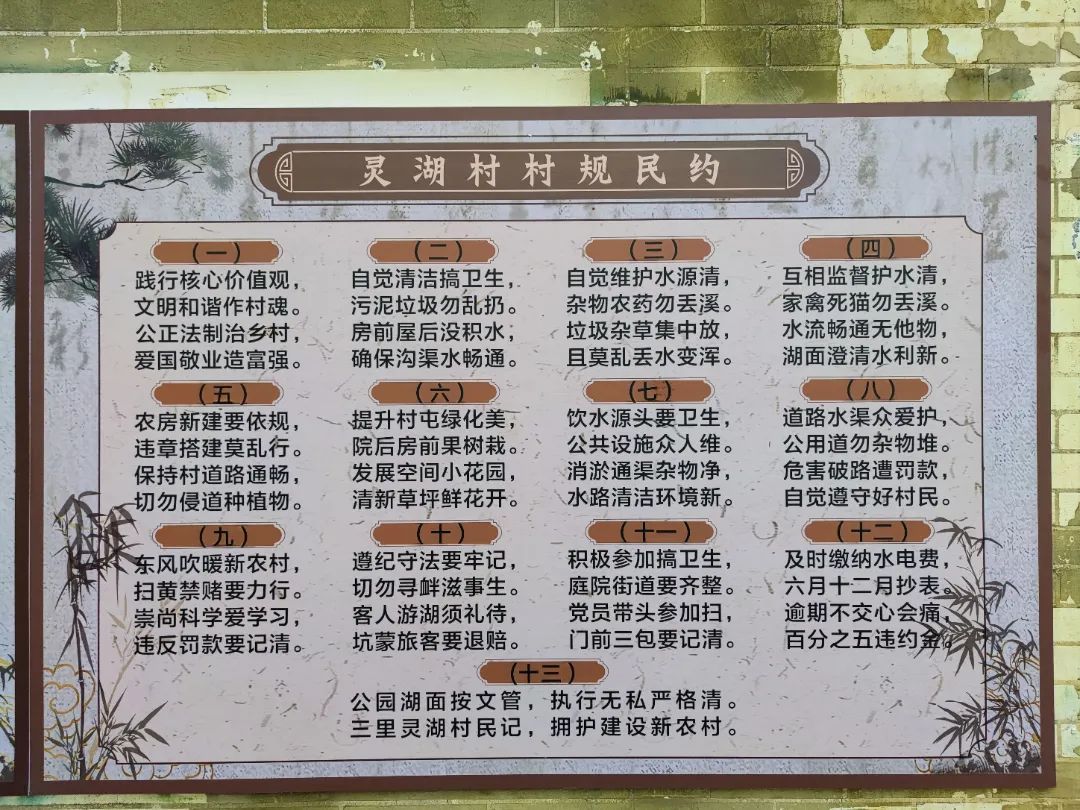 灵湖村村规民约
（一）
践行核心价值观，
文明和谐作村魂。
公正法制治乡村，
爱国敬业造富强。
（二）
自觉清洁搞卫生，
污泥垃圾勿乱扔。
房前屋后没积水，
确保沟渠水畅通。
（三）
自觉维护水源清，
杂物农药勿丢溪。
垃圾杂草集中放，
且莫乱丢水变浑。
（四）
互相监督护水清，
家禽死猫勿丢溪。
水流畅通无他物，
湖面澄清水利新。
（五）
农房新建要依规，
违章搭建莫乱行。
保持村道路通畅，
切勿侵道种植物。
（六）
提升村屯绿化美，
院后房前果树栽。
发展空间小花园，
清新草坪鲜花开。
（七）
饮水源头要卫生，
公共设施众人维。
消淤通渠杂物净，
水路清洁环境新。
（八）
道路水渠众爱护，
公用道勿杂物堆。
危害破路遭罚款，
自觉遵守好村民。
（九）
东风吹暖新农村，
扫黄禁赌要力行。
崇尚科学爱学习，
违反罚款要记清。
（十）
遵纪守法要牢记，
切勿寻衅滋事生。
客人游湖须礼待，
坑蒙旅客要退赔。
（十一）
积极参加搞卫生，
庭院街道要齐整。
党员带头参加扫，
门前三包要记清。
（十二）
及时缴纳水电费，
六月十二月抄表。
逾期不交心会痛，
百分之五违约金。
（十三）
公园湖面按文管，执行无私严格清。
三里灵湖村民记，拥护建设新农村。